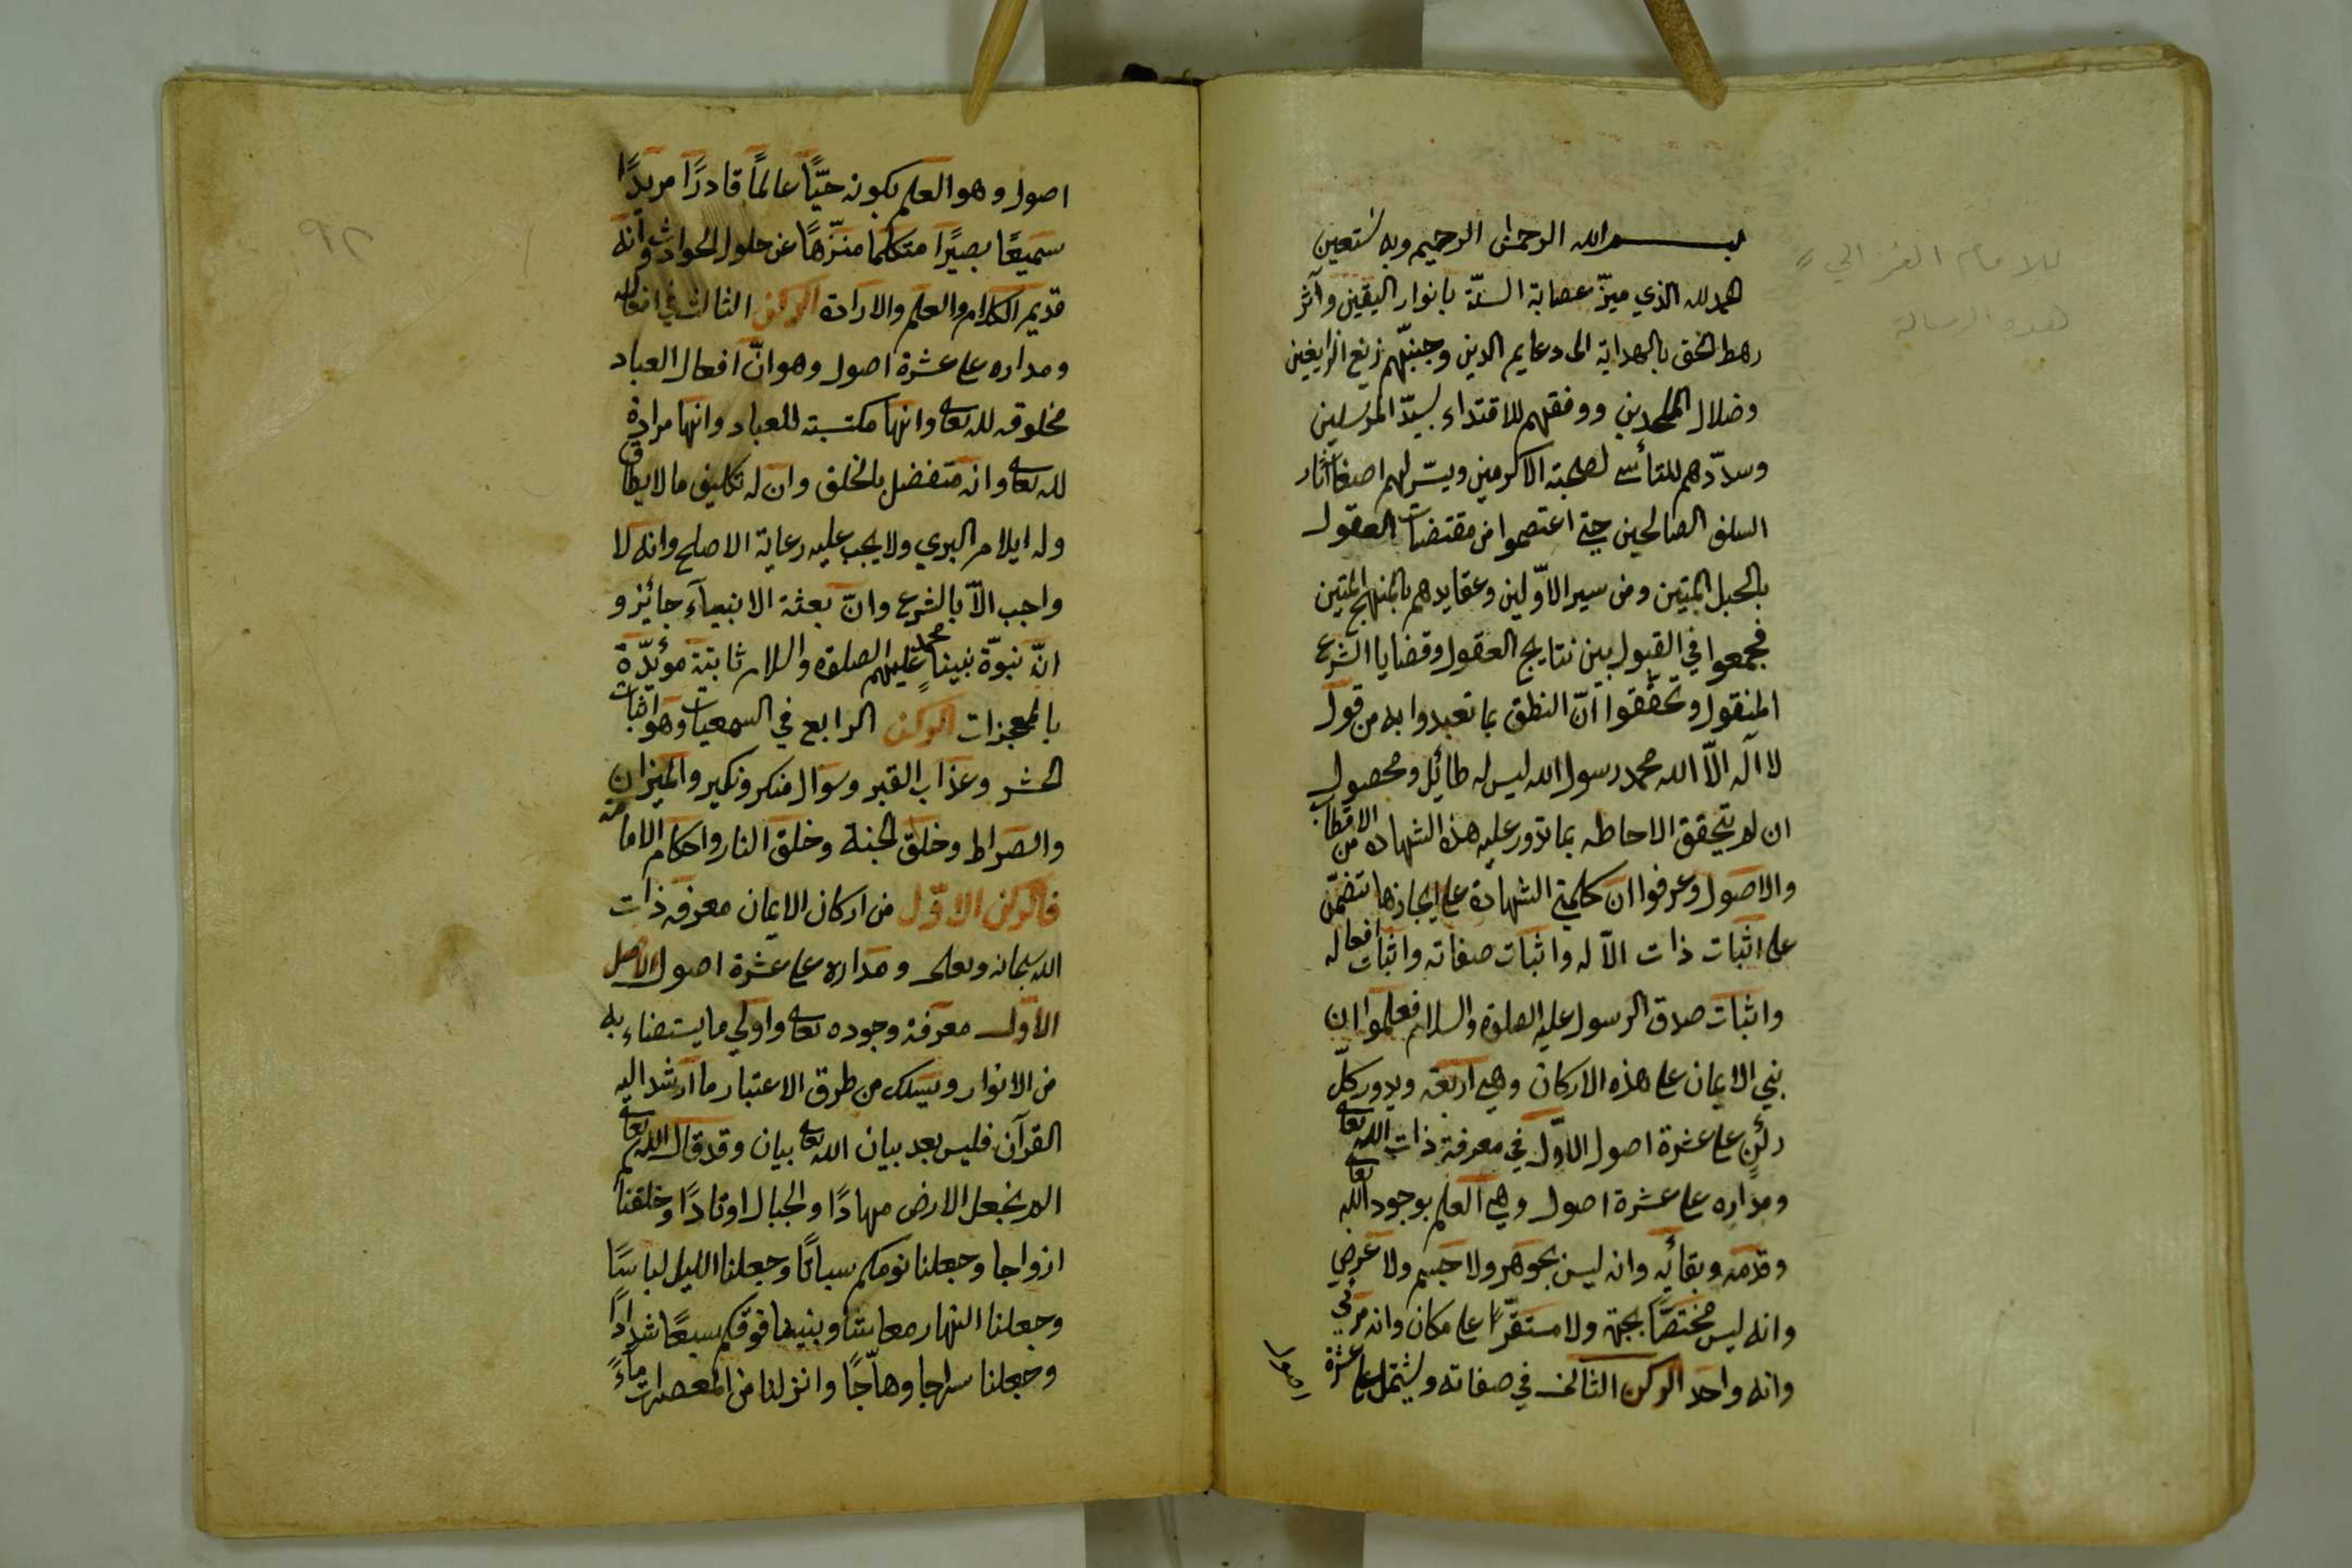 بسم الله الرحمن الرحيم وبه نستعين
الحمد لله الذي ميّز عصابة السنّة بانوار اليقين وآثر
رهط الحق بالهداية الى دعايم الدين وجنبّهم زيغ الزايغين
وضلال الملحدين ووفقهم للاقتداء بسيّد المرسلين
وسدّدهم للتأسى لصحبته الاكرمين ويسّر لهم اصفاث اثار
السلف الصالحين حتى اعتصموا من مقتضات العقول
بالحبل المتين ومن سير الاوّلين وعقايدهم بالمنهج المتين
فجمعوا في القبول بين نتايج العقول وقضايا الشرع
المنقول وتحققوا انّ النطق بما تعبدوا به من قول
لا اله الاّ الله محمد رسول الله ليس له طائل ومحصول
ان لم يتحقق الاحاطه بما تدور عليه هذه الشهاده من الاقطاب
والاصول وعرفوا ان كلمتى الشهادة على ايجازها تتضمّن
على اثبات ذات الاله واثبات صفاته واثبات افعاله
واثبات صدق الرسول عليه الصلوة والسلام فعلموا ان
بني الايمان على هذه الاركان وهي اربعة ويدور كلّ
ركن على عشرة اصول الاوّل في معرفة ذات الله تعالى
ومداره على عشرة اصول وهي العلم بوجود الله تعالى
وقدمه وبقائه وانه ليس بجوهر ولا جسم ولا عرض
وانه ليس مختصّا بجهة ولا مستقرّا على مكان وانه مرئي
وانه واحد الركن الثاني في صفاته ويشتمل على عشرة
اصول
للامام الغزالي
هذه الرسالة
٩٢
اصول وهو العلم بكونه حيّا عالماً قادرًا مريدًا
سميعًا بصيرًا متكلما منزّهًا عن حلول الحوادث وانه
قديم الكلام والعلم والارادة الركن الثالث في افعاله
ومداره على عشرة اصول وهو انّ افعال العباد
مخلوقه لله تعالى وانها مكتسبته للعباد وانها مرادة
لله تعالى وانه متفضل بالخلق وان له تكليف ما لا يطاق
وله ايلام البري ولا يجب عليه رعاية الاصلح وانه لا
واجب الاّ بالشرع وانّ بعثة الانبيآء جائز و
انّ نبوّة نبينا محمد عليهم الصلوة والسلام ثابتة مؤيّدة
بالمعجزات الركن الرابع في السمعيات وهو اثبات
الحشر وعذاب القبر وسوال منكر ونكير والميزان
والصراط وخلق الجنة وخلق النار واحكام الامامة
فالركن الاوّل من اركان الايمان معرفه ذات
الله سبحانه وتعالى ومداره على عشرة اصول الاصل
الاول معرفة وجوده تعالى واولي ما يستضاء به
من الانوار ويسلك من طرق الاعتبار ما ارشد اليه
القرآن فليس بعد بيان الله تعالى بيان وقد قال الله تعالى
الم نجعل الارض مهادًا والجبال اوتادًا وخلقناكم
ازواجا وجعلنا نومكم سباتًا وجعلنا الليل لباسًا
وجعلنا النهار معاشا وبنينا فوقكم سبعًا شدادًا
وجعلنا سراجا وهاّجًا وانزلنا من المعصرات ماءً